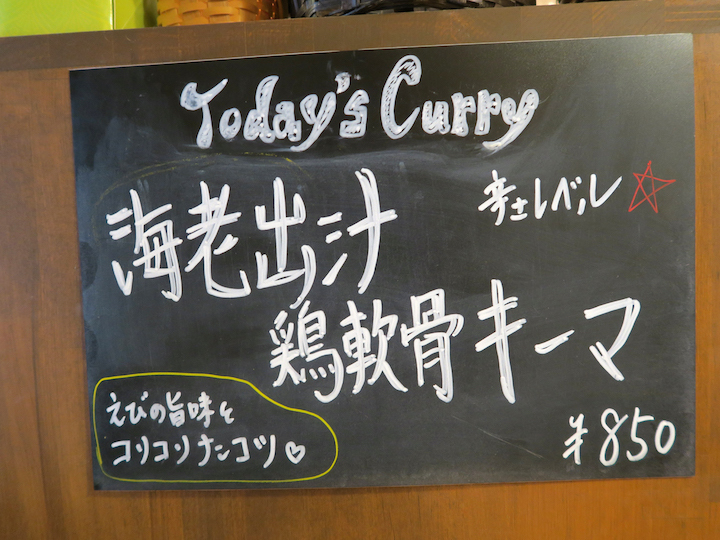 Today's Curry
海老出汁
辛さレベル ☆
鶏軟骨キーマ
えびの旨味と
コリコリナンコツ♡
¥850